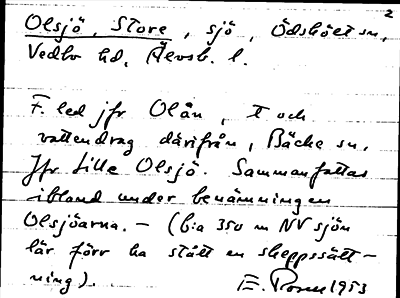 2
Olsjö, Store, sjö, Ödskölt sn,
Vedbo hd, Älvsb. l.
F. led jfr Olån, t och
vattendrag därifrån, Bäcke sn.
Jfr Lilla Olsjö. Sammanfattas
ibland under benämningen
Olsjöarna. – (C:a 350 m NV sjön
lär förr ha stått en skeppssätt-
ning). E. Rosell 1953